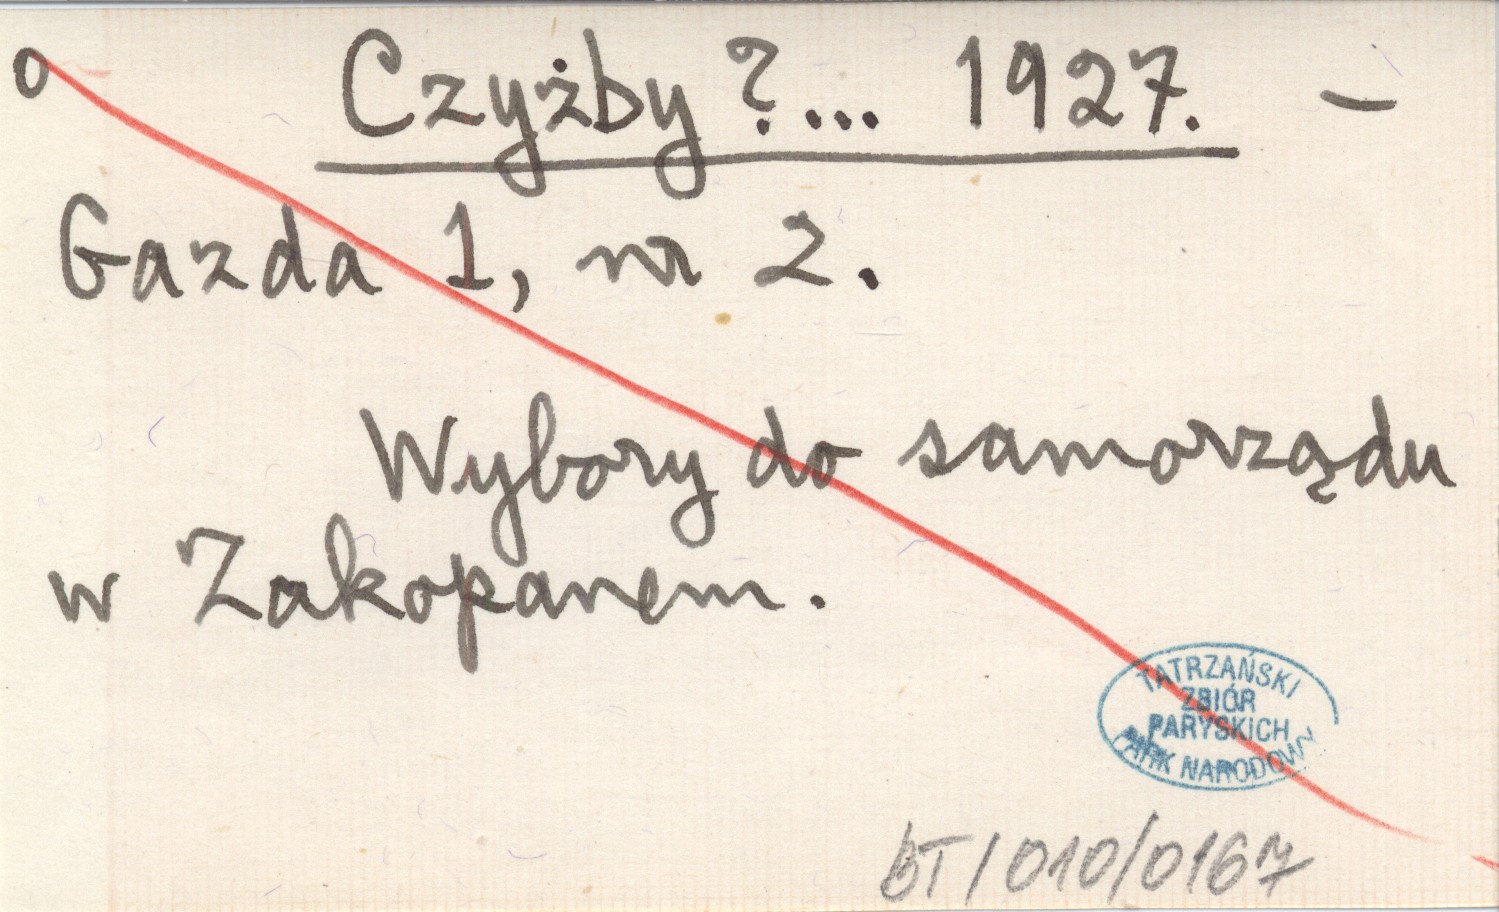 o Czyżby?... 1927. –
Gazda 1, nr 2.
Wybory do samorządu
w Zakopanem.
TATRZAŃSKI
ZBIÓR
PARYSKICH
PARK NARODOWY
BT/010/0167